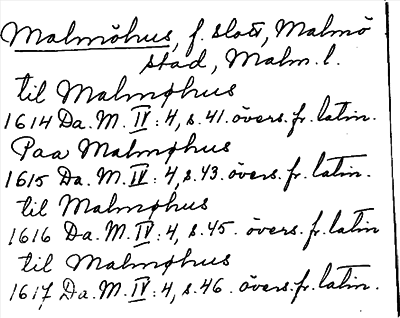 Malmöhus, f. slott, Malmö
stad, Malm. l.
til Malmøhus
1614 Da. M. IV: 4, s. 41. övers. fr. latin.
Paa Malmøhus
1615 Da. M. IV: 4, s. 43. övers. fr. latin.
til Malmøhus
1616 Da. M. IV: 4, s. 45. övers. fr. latin
til Malmøhus
1617 Da. M. IV: 4, s. 46. övers. fr. latin.